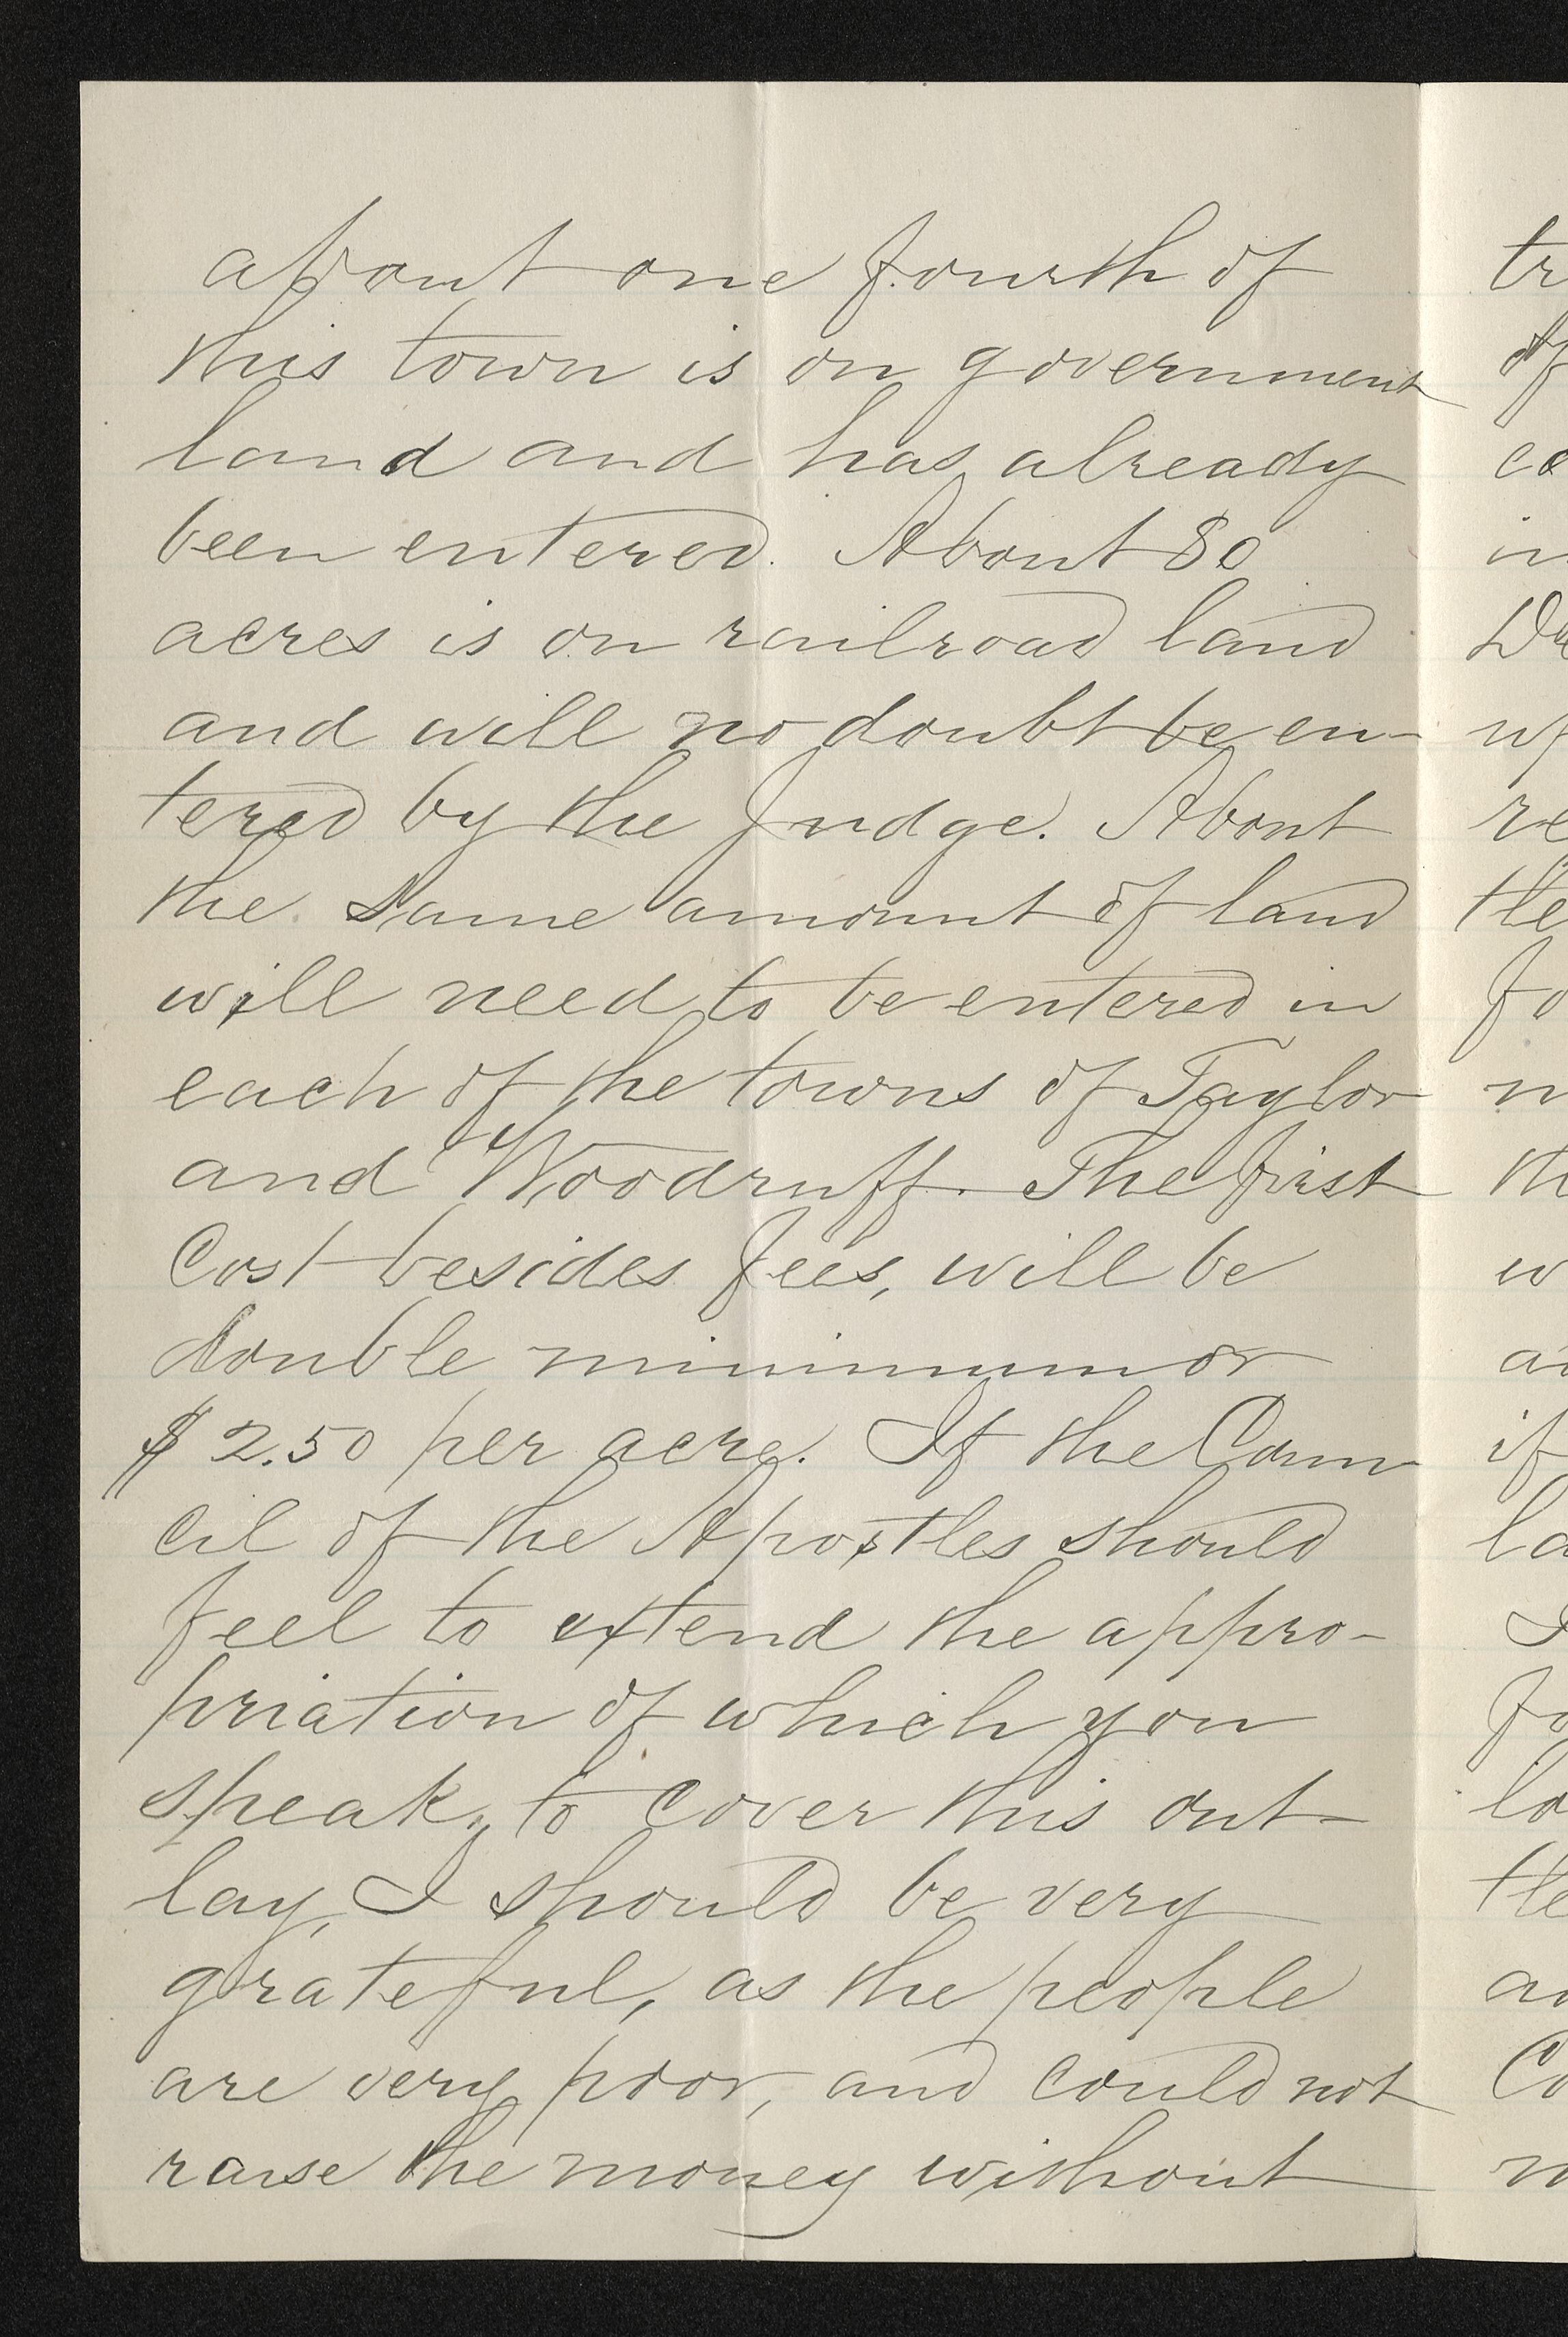 about one fourth of
this town is on government
land and has already
been entered. About 80
acres is on railroad land
and will no doubt be en-
tered by the Judge. About
the same amount of land
will need to be entered in
each of the towns of Taylor
and Woodruff. The first
Cost besides fees, will be
double minimum or
$2.50 per acre. If the Coun-
cil of the Apostles should
feel to extend the appro-
priation of which you
speak, to cover this out-
lay, I should be very
grateful, as the people
are very poor, and could not
raise the money without